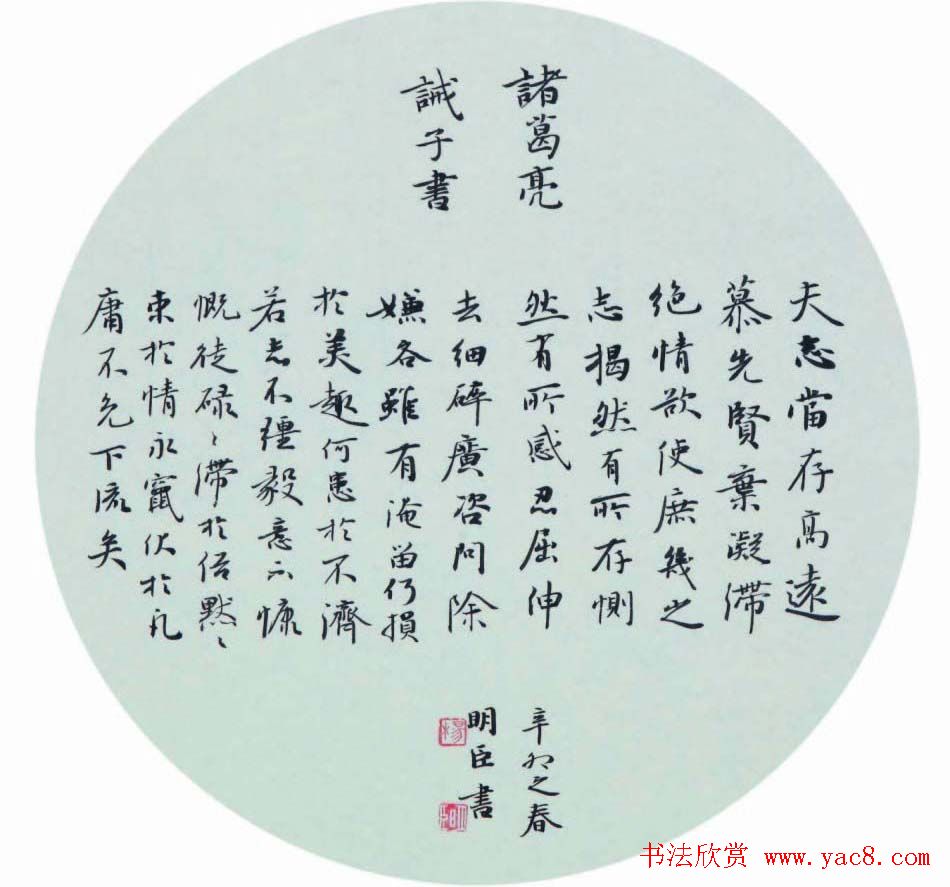 諸葛亮
誡子書
夫志當存高遠
慕先賢棄凝滯
絶情欲使庶幾之
志揭然有所存惻
然有所感忍屈伸
去細碎廣咨問除
嫌吝雖有淹留仍損
於美趣何患於不濟
若志不彊毅意不慷
慨徒碌〻滯於俗默〻
束於情永竄伏於凡
庸不免下流矣
辛卯之春
明臣書
楊
书法欣赏 www.yac8.com